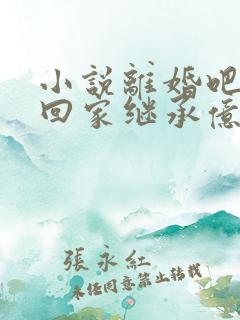 小說離婚吧
回家继承億
張永红
未经同意禁止转载